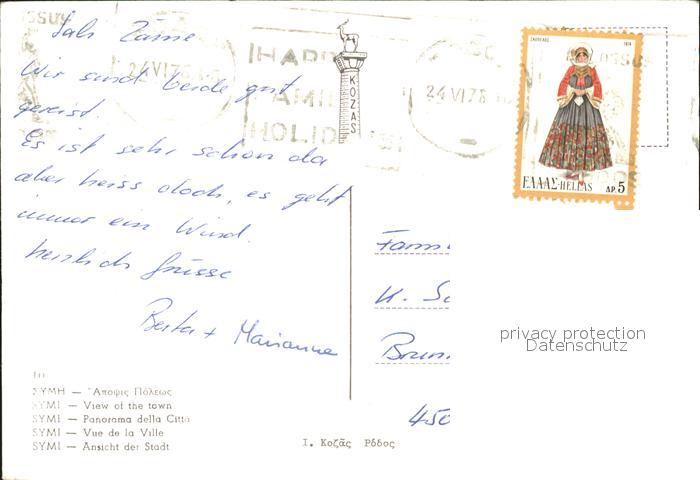 Sali Zäme
Wir sind beide gut
gereist.
Es ist sehr schön da
aber heiss doch, es geht
immer ein Wind.
herzlich Grüsse
Berta + Marianne
ΣΥΜΗ — Ἄποψις Πόλεως
SYMI — View of the town
SYMI — Panorama della Citta
SYMI — Vue de la Ville
SYMI — Ansicht der Stadt
Ι. Κοζᾶς Ρόδος
KOZAS
24 VI 78
HAPPY
FAMILY
HOLIDAYS
24 VI 78
1974
ΕΛΛΑΣ-HELLAS ΔΡ. 5
Fam
K. S
Brun
450
privacy protection
Datenschutz